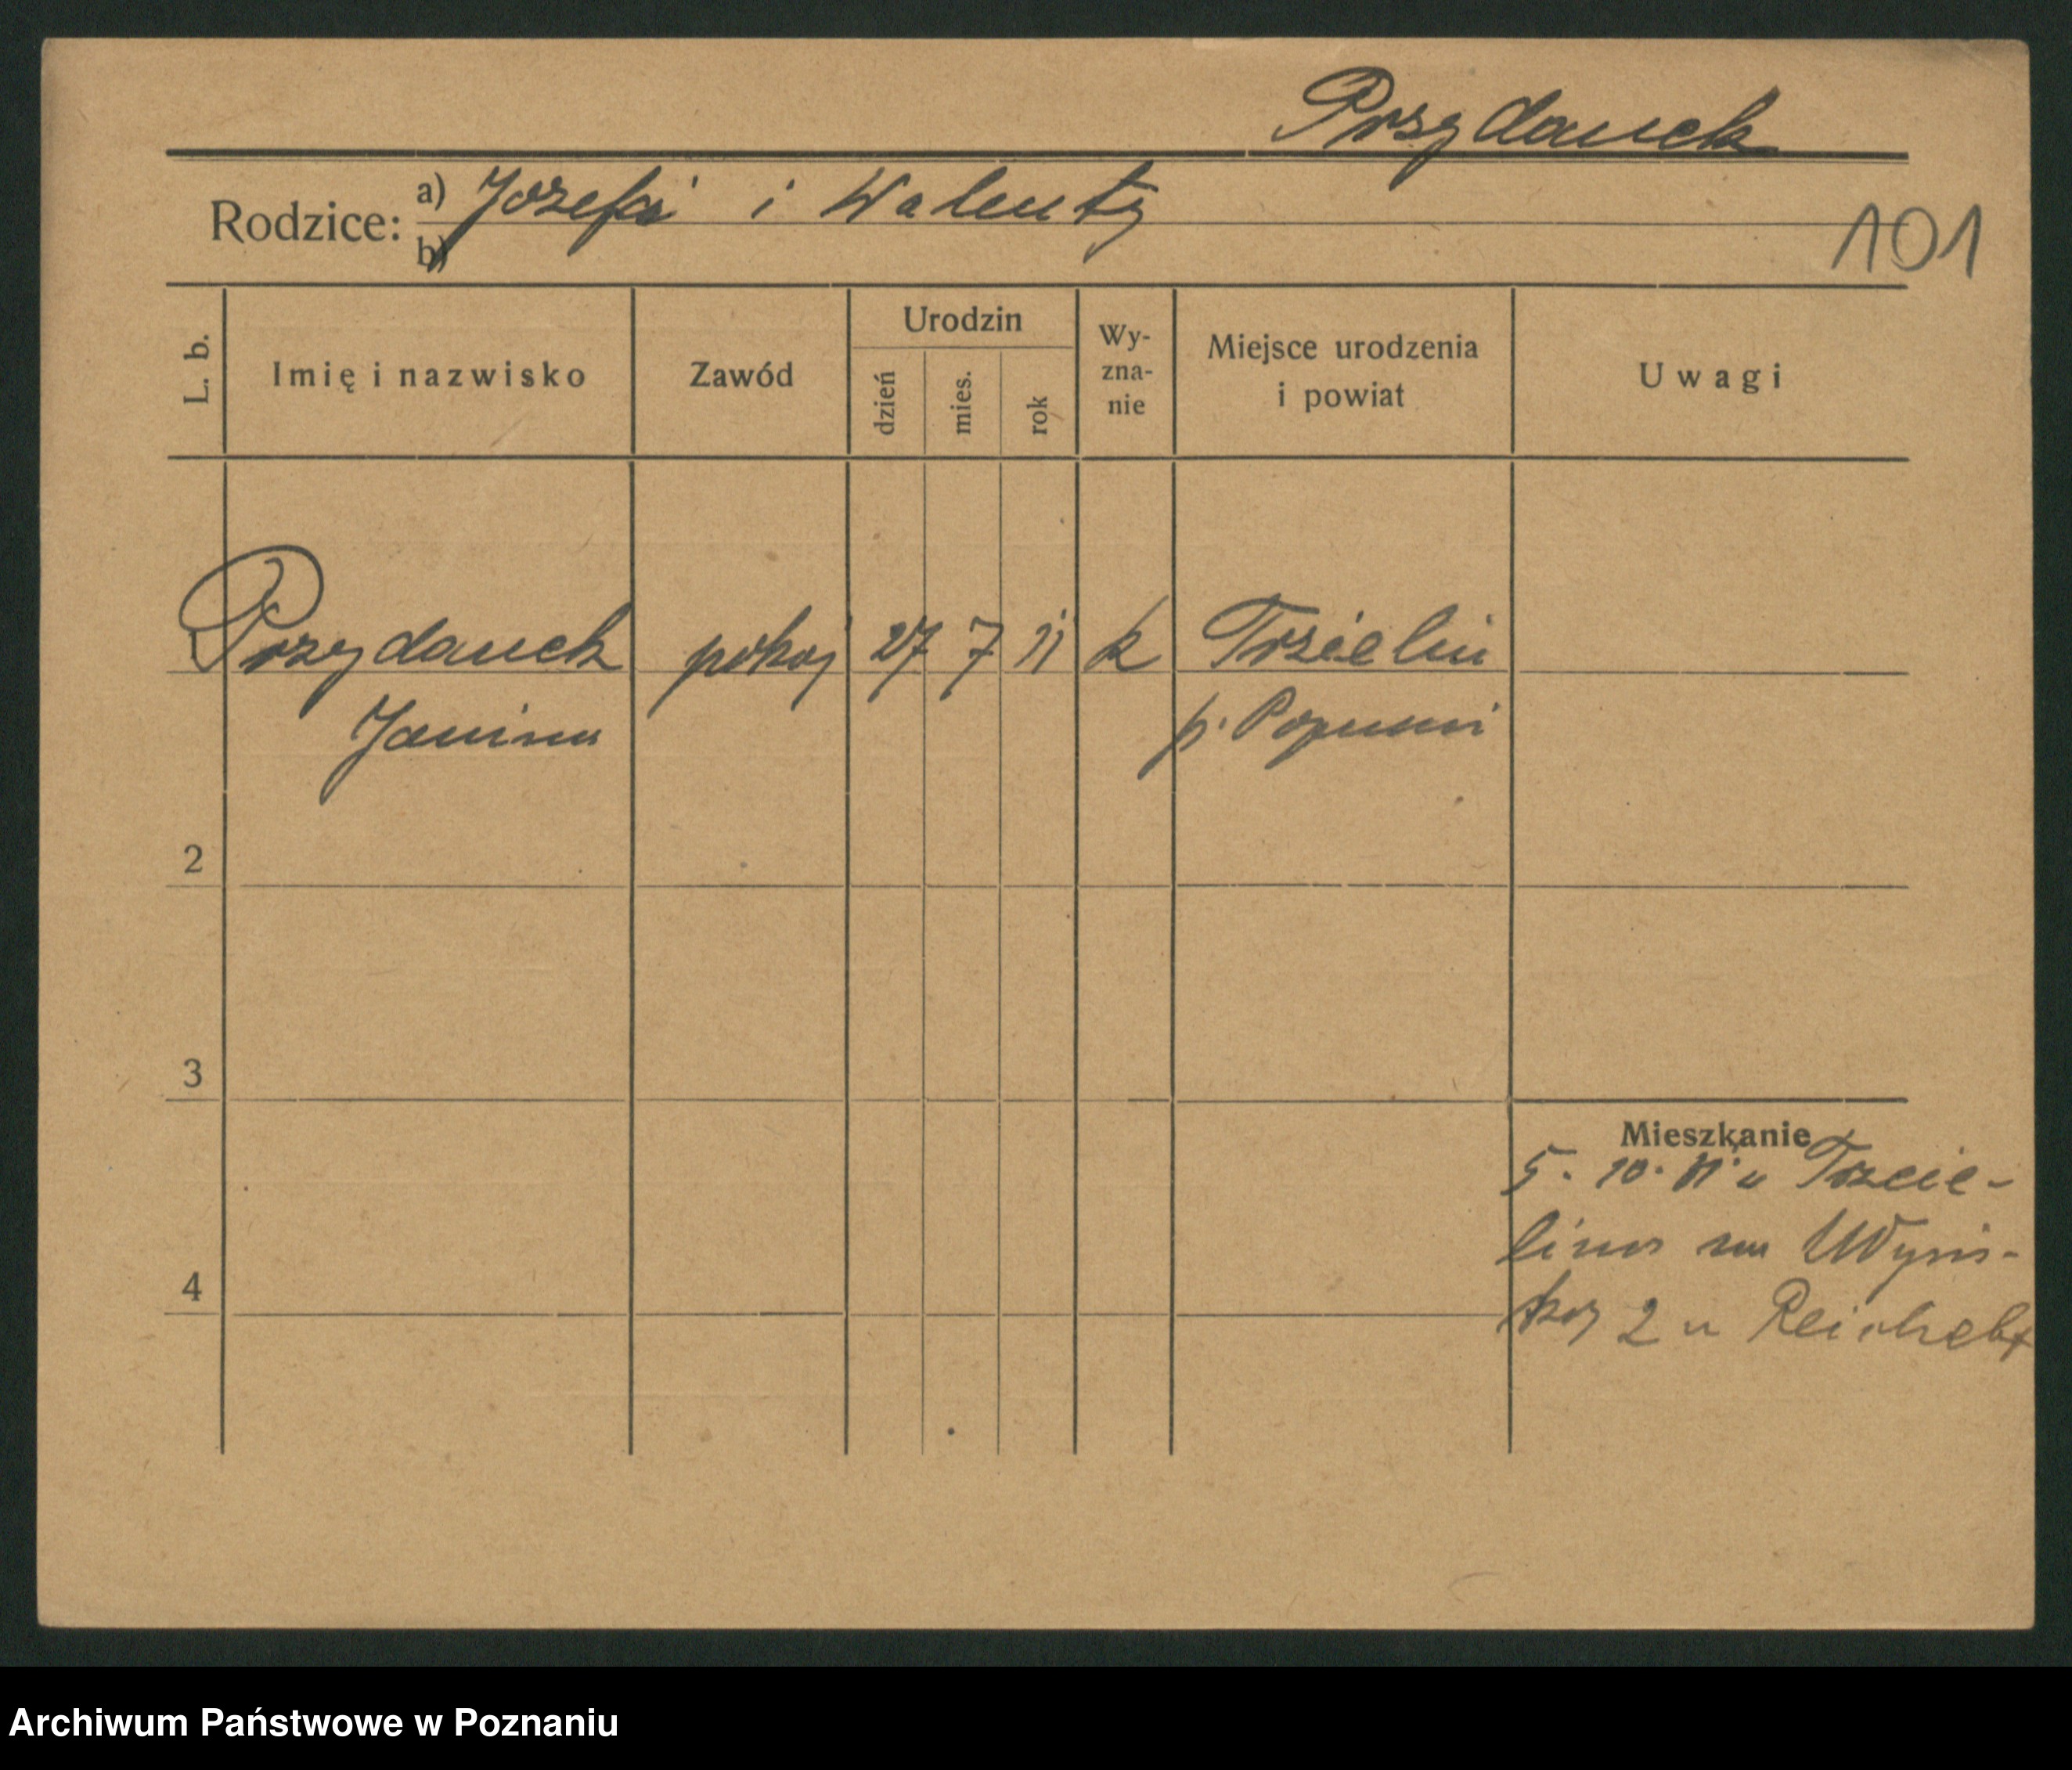 Przydanek
Rodzice: a) Józefa i Walenty
b)
101
L. b.
Imię i nazwisko
Zawód
Urodzin
dzień
mies.
rok
Wy-
zna-
nie
Miejsce urodzenia
i powiat
Uwagi
Przydanek pokoj 27 7 11 k Trzielin
Janina p. Poznań
2
3
4
Mieszkanie
5. 10. z Trzcie-
lina na Wyspis-
2 u Reichelt
Archiwum Państwowe w Poznaniu